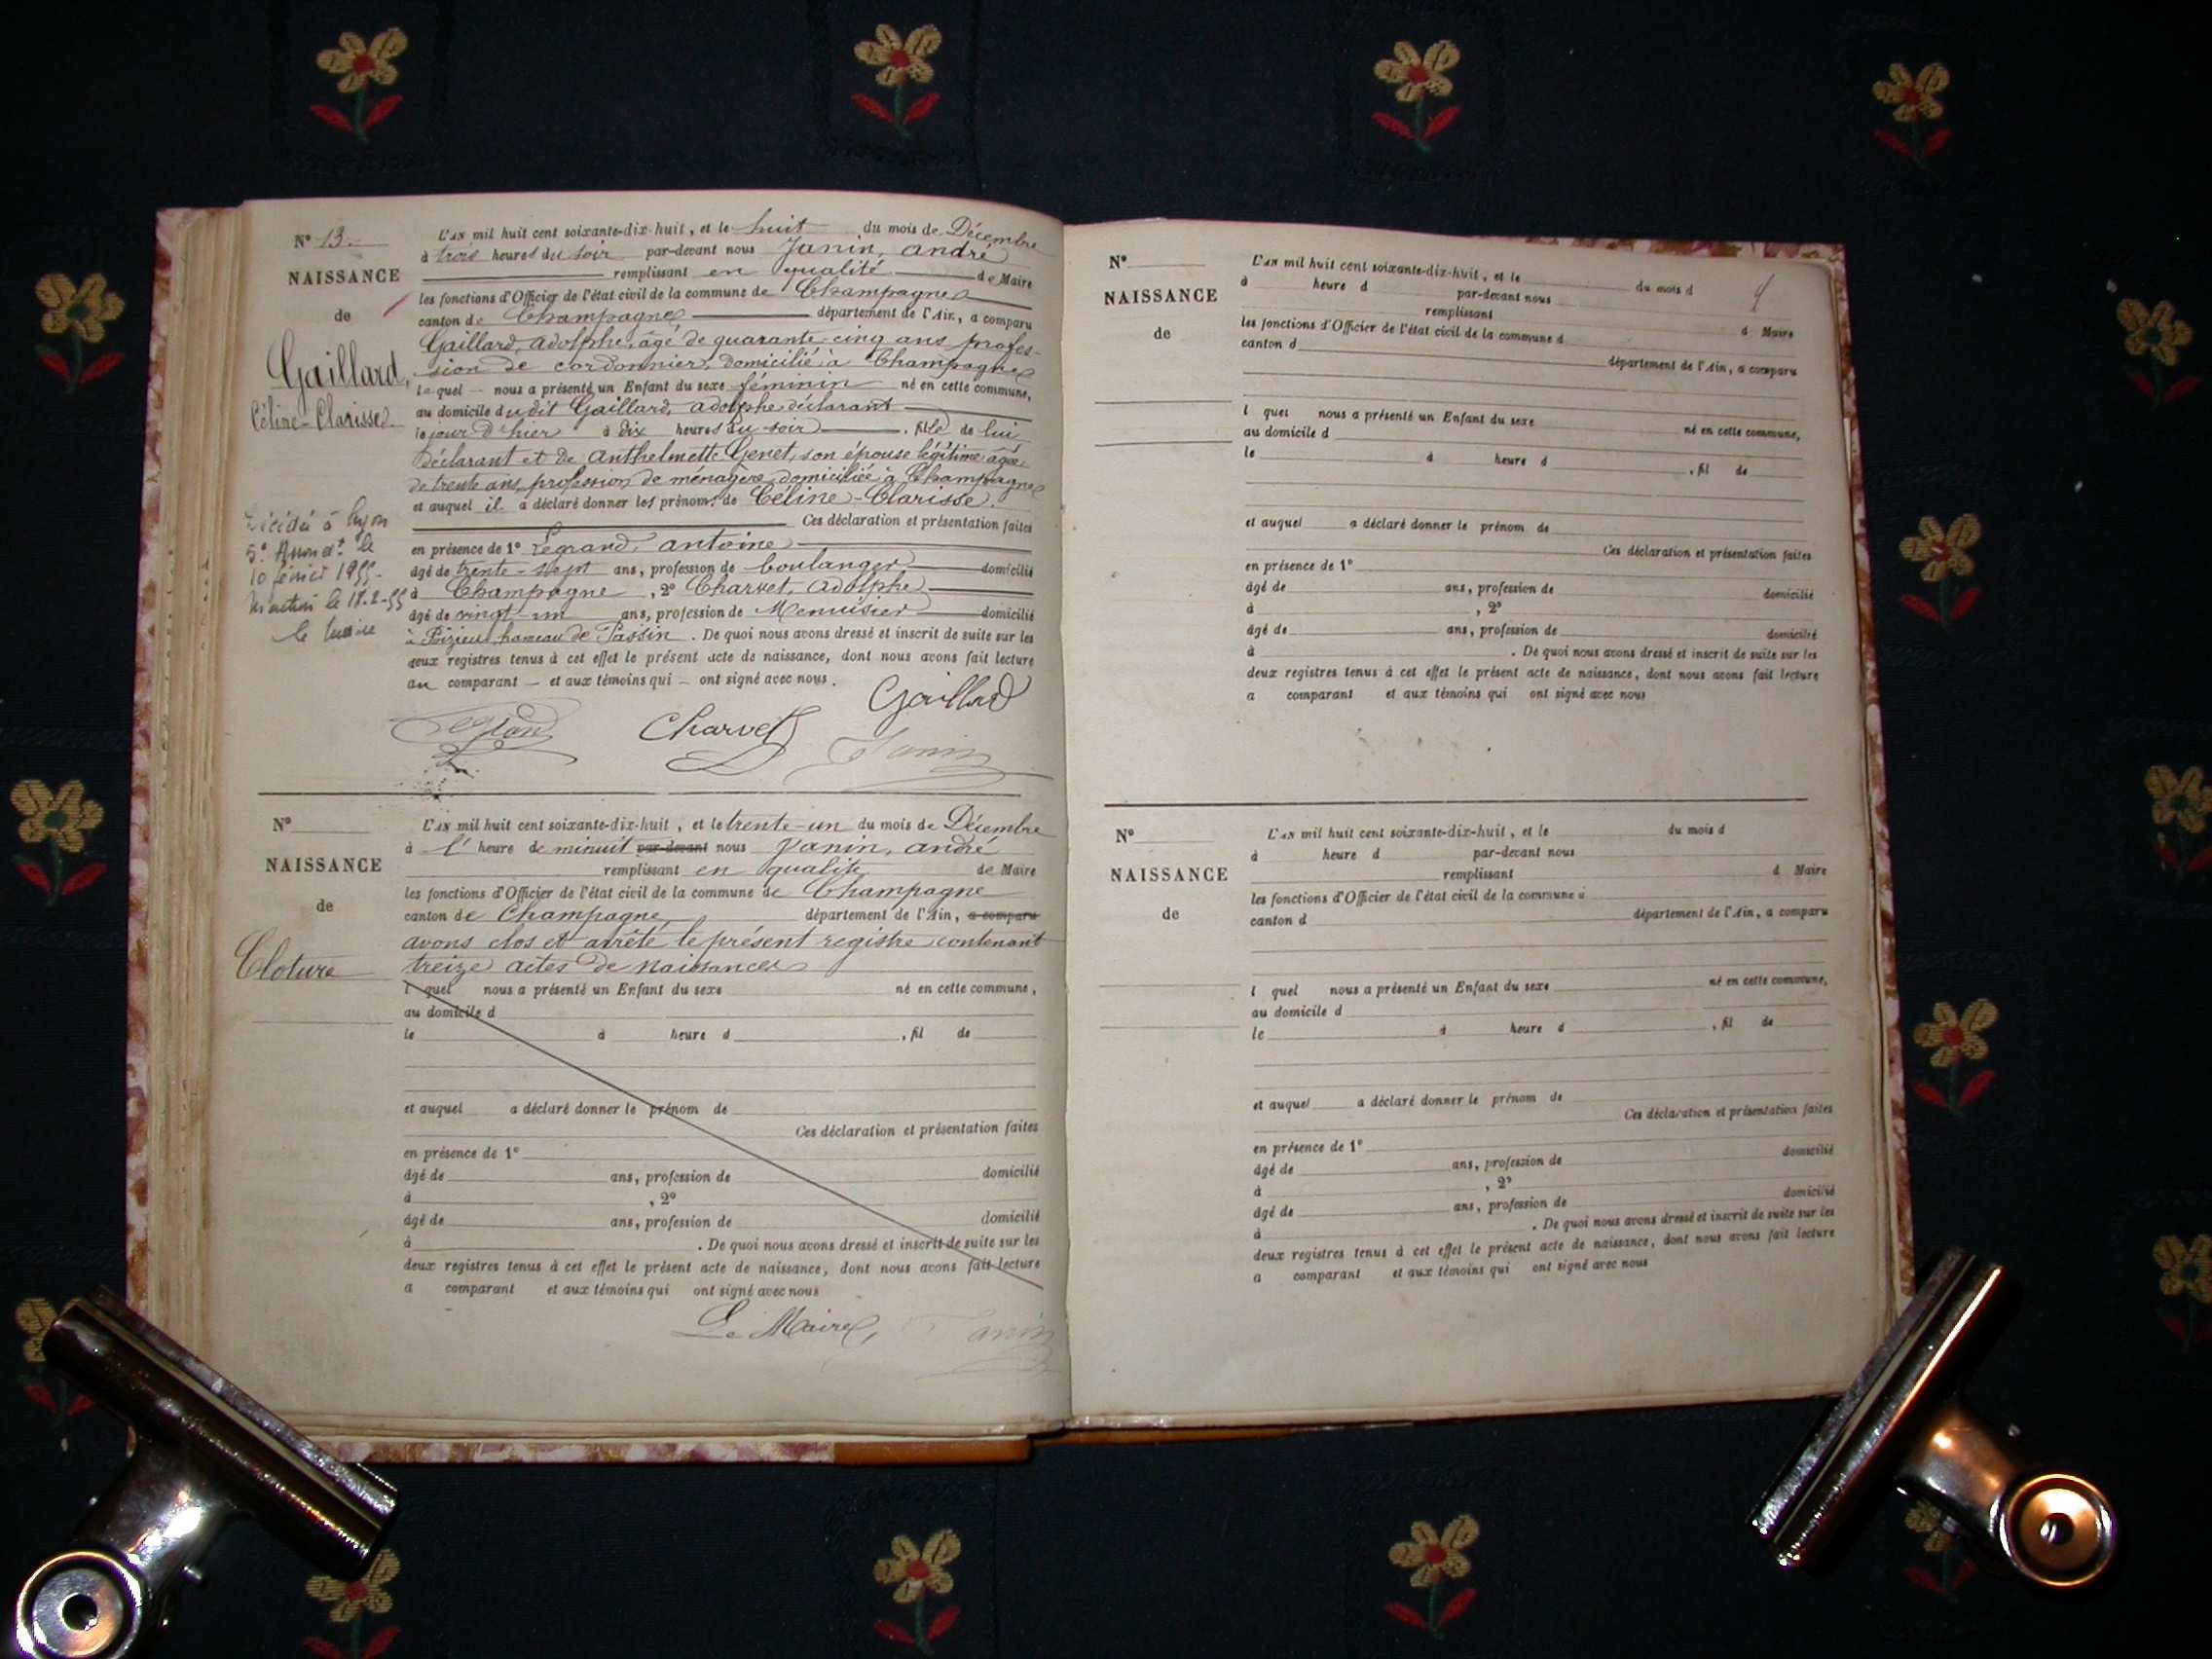 N° 13.
NAISSANCE
de
Gaillard,
Céline-Clarisse
Décédée à Lyon
5e Arrondt. le
10 février 1955
le 18-2-55
le
L'AN mil huit cent soixante-dix-huit, et le huit du mois de Décembre
à trois heures du soir par-devant nous Janin, andré
remplissant en qualité de Maire
les fonctions d'Officier de l'état civil de la commune de Champagne
canton de Champagne département de l'Ain, a comparu
Gaillard, adolphe, âgé de quarante-cinq ans profes-
sion de cordonnier, domicilié à Champagne
lequel nous a présenté un Enfant du sexe féminin né en cette commune,
au domicile dudit Gaillard, adolphe déclarant
le jour d'hier à dix heures du soir, fille de lui
déclarant et de Anthelmette Genet, son épouse légitime âgée
de trente ans, profession de ménagère domiciliée à Champagne
et auquel il a déclaré donner les prénoms de Céline-Clarisse.
Ces déclaration et présentation faites
en présence de 1° Legrand, antoine
âgé de trente-sept ans, profession de boulanger domicilié
à Champagne, 2° Charvet, Adolphe
âgé de vingt-un ans, profession de Menuisier domicilié
à Poizieu, hameau de Passin. De quoi nous avons dressé et inscrit de suite sur les
deux registres tenus à cet effet le présent acte de naissance, dont nous avons fait lecture
au comparant — et aux témoins qui — ont signé avec nous.
Gaillard
Legrand Charvet Janin
N°
NAISSANCE
de
Cloture
L'AN mil huit cent soixante-dix-huit, et le trente-un du mois de Décembre
à l' heure de minuit par-devant nous Janin, andré
remplissant en qualité de Maire
les fonctions d'Officier de l'état civil de la commune de Champagne
canton de Champagne département de l'Ain, a comparu
avons clos et arrêté le présent registre contenant
treize actes de naissances
l quel nous a présenté un Enfant du sexe né en cette commune,
au domicile d
le à heure d , fil de
et auquel a déclaré donner le prénom de
Ces déclaration et présentation faites
en présence de 1°
âgé de ans, profession de domicilié
à , 2°
âgé de ans, profession de domicilié
à . De quoi nous avons dressé et inscrit de suite sur les
deux registres tenus à cet effet le présent acte de naissance, dont nous avons fait lecture
a comparant et aux témoins qui ont signé avec nous
Le Maire, Janin
N°
NAISSANCE
de
L'AN mil huit cent soixante-dix-huit, et le du mois d
à heure d par-devant nous
remplissant d Maire
les fonctions d'Officier de l'état civil de la commune d
canton d département de l'Ain, a comparu
l quel nous a présenté un Enfant du sexe né en cette commune,
au domicile d
le à heure d , fil de
et auquel a déclaré donner le prénom de
Ces déclaration et présentation faites
en présence de 1°
âgé de ans, profession de domicilié
à , 2°
âgé de ans, profession de domicilié
à . De quoi nous avons dressé et inscrit de suite sur les
deux registres tenus à cet effet le présent acte de naissance, dont nous avons fait lecture
a comparant et aux témoins qui ont signé avec nous
N°
NAISSANCE
de
L'AN mil huit cent soixante-dix-huit, et le du mois d
à heure d par-devant nous
remplissant d Maire
les fonctions d'Officier de l'état civil de la commune d
canton d département de l'Ain, a comparu
l quel nous a présenté un Enfant du sexe né en cette commune,
au domicile d
le à heure d , fil de
et auquel a déclaré donner le prénom de
Ces déclaration et présentation faites
en présence de 1°
âgé de ans, profession de domicilié
à , 2°
âgé de ans, profession de domicilié
à . De quoi nous avons dressé et inscrit de suite sur les
deux registres tenus à cet effet le présent acte de naissance, dont nous avons fait lecture
a comparant et aux témoins qui ont signé avec nous